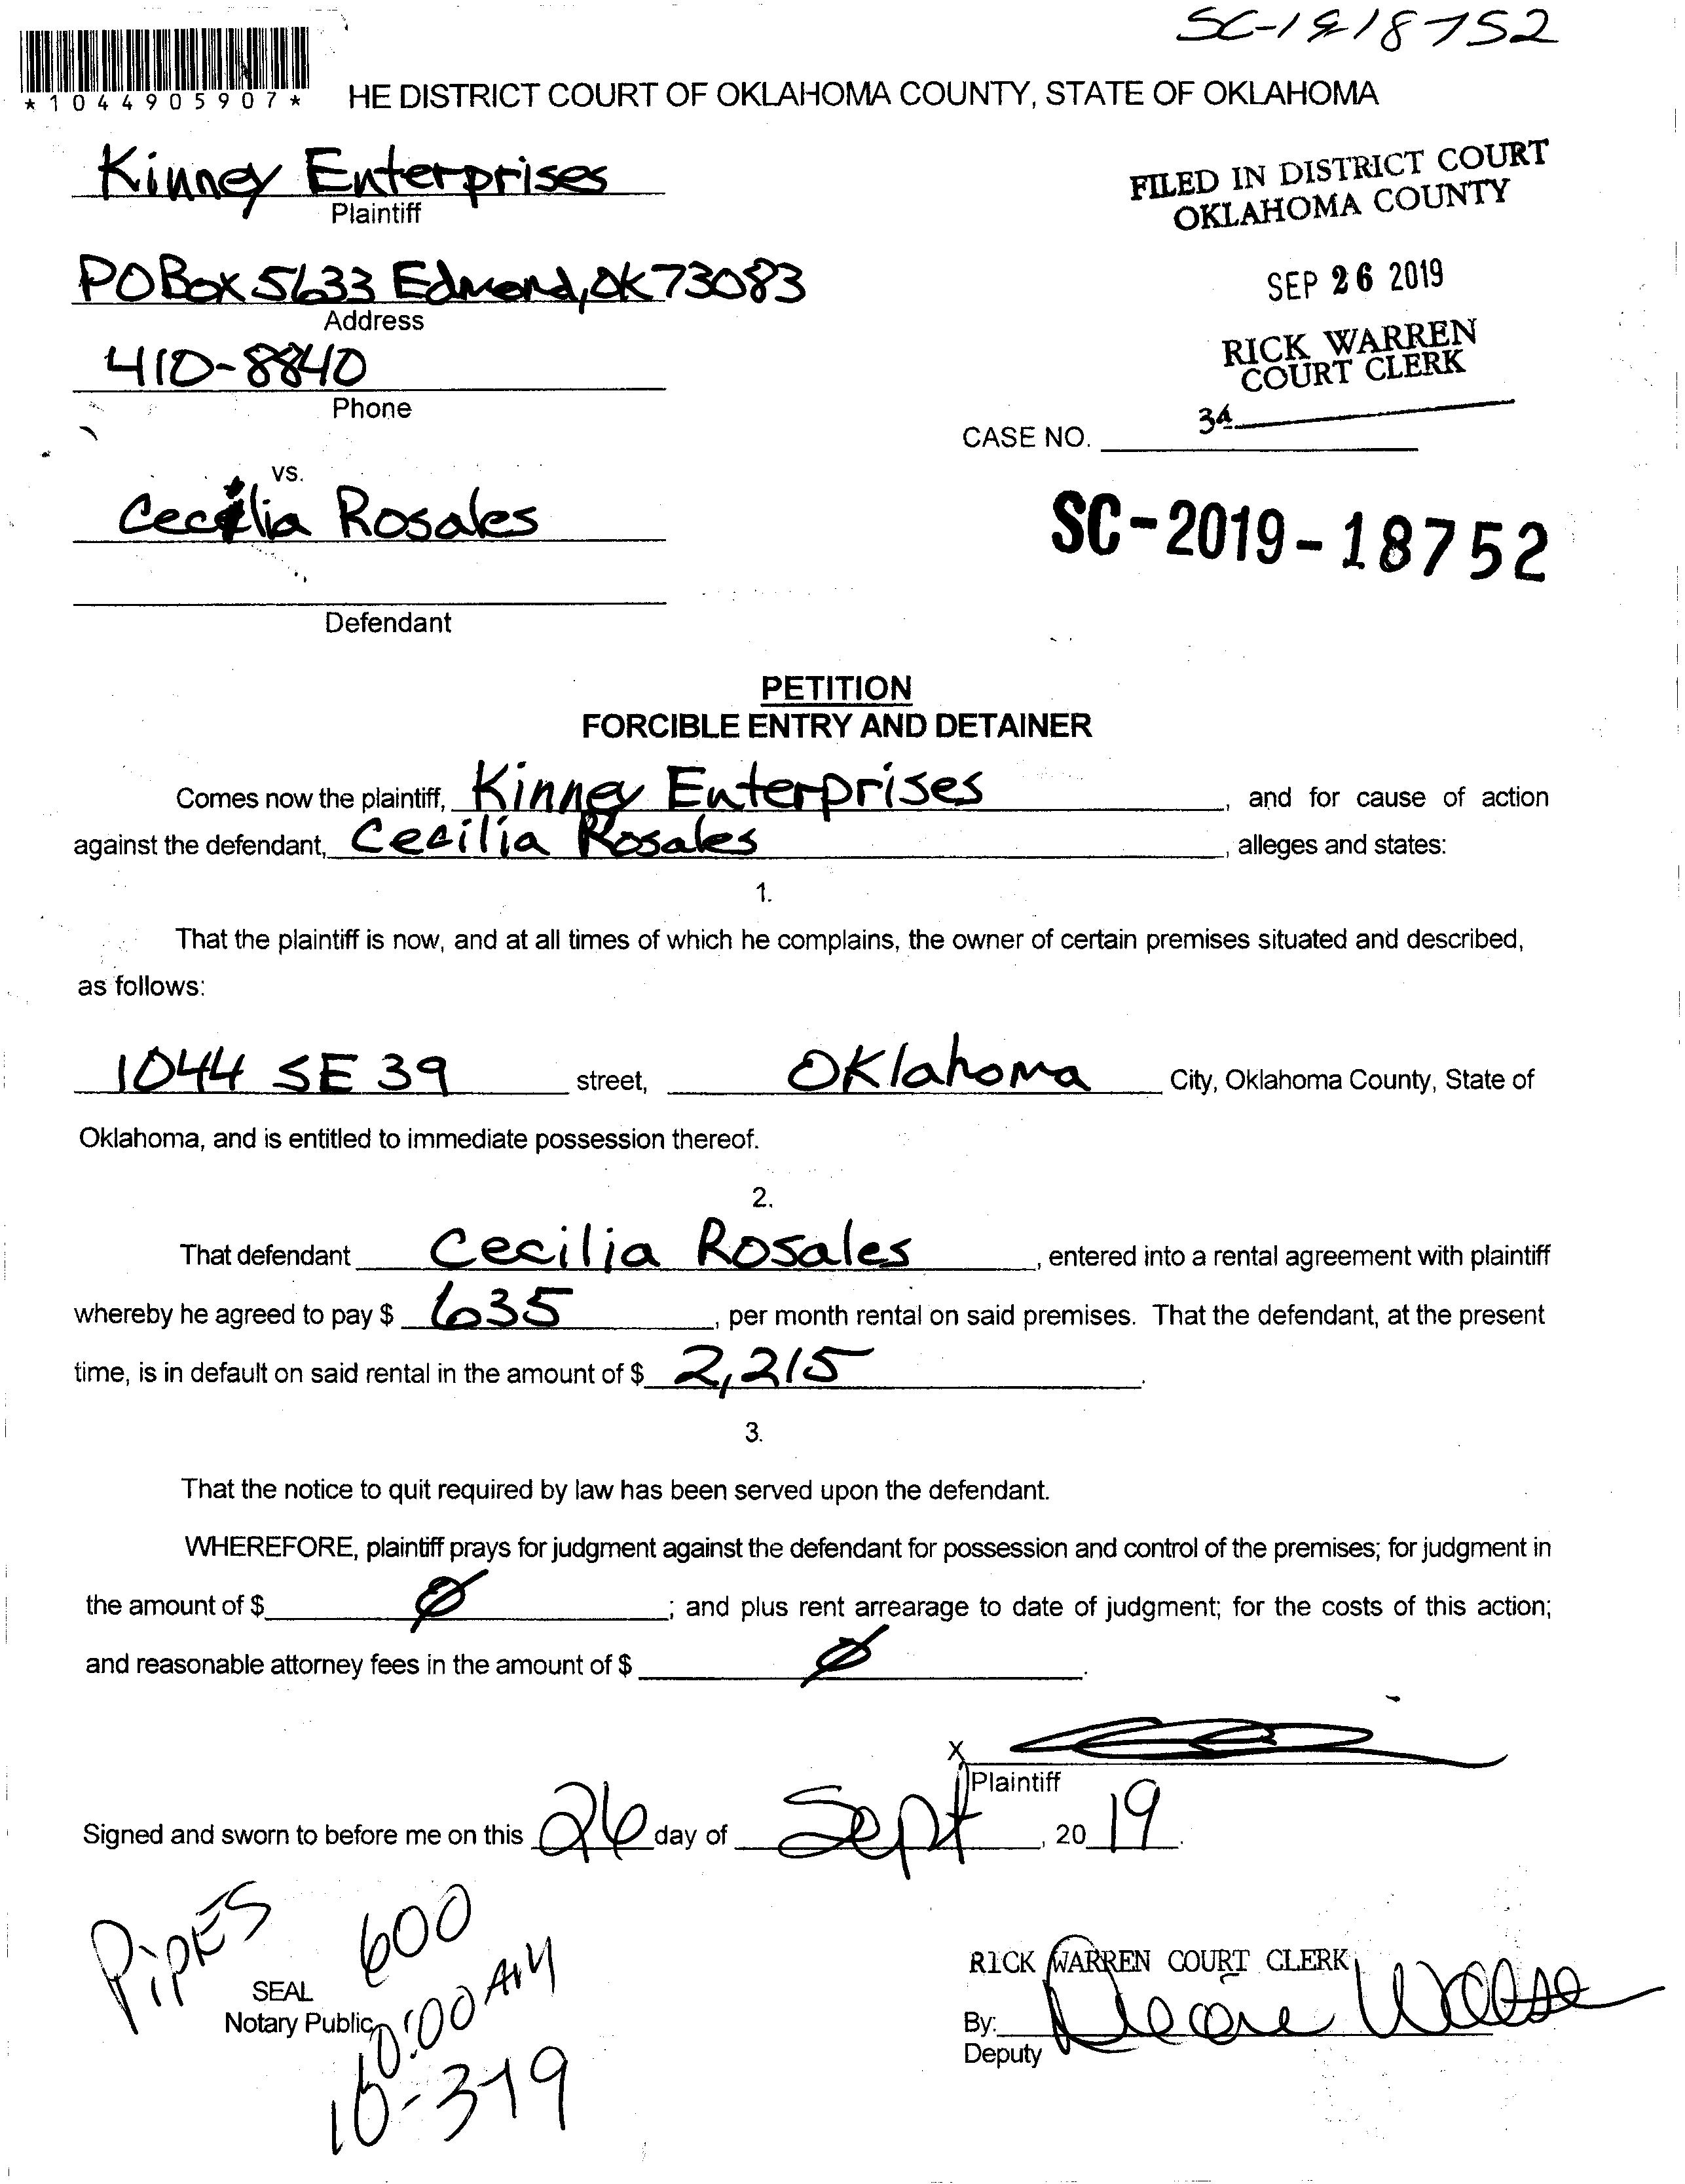 SC-19-18752
*1044905907*
HE DISTRICT COURT OF OKLAHOMA COUNTY, STATE OF OKLAHOMA
Kinney Enterprises
Plaintiff
FILED IN DISTRICT COURT
OKLAHOMA COUNTY
PO Box 5633 Edmond, OK 73083
Address
SEP 26 2019
410-8840
Phone
RICK WARREN
COURT CLERK
34
CASE NO.
vs.
Cecilia Rosales
SC-2019-18752
Defendant
PETITION
FORCIBLE ENTRY AND DETAINER
Comes now the plaintiff, Kinney Enterprises, and for cause of action
against the defendant, Cecilia Rosales, alleges and states:
1.
That the plaintiff is now, and at all times of which he complains, the owner of certain premises situated and described,
as follows:
1044 SE 39 street, Oklahoma City, Oklahoma County, State of
Oklahoma, and is entitled to immediate possession thereof.
2.
That defendant Cecilia Rosales, entered into a rental agreement with plaintiff
whereby he agreed to pay $ 635, per month rental on said premises. That the defendant, at the present
time, is in default on said rental in the amount of $ 2,215.
3.
That the notice to quit required by law has been served upon the defendant.
WHEREFORE, plaintiff prays for judgment against the defendant for possession and control of the premises; for judgment in
the amount of $ Ø; and plus rent arrearage to date of judgment; for the costs of this action;
and reasonable attorney fees in the amount of $ Ø.
X
Plaintiff
Signed and sworn to before me on this 26 day of Sept, 20 19.
PIPES 600
SEAL
Notary Public
10:00 AM
10-3-19
RICK WARREN COURT CLERK
By:
Deputy